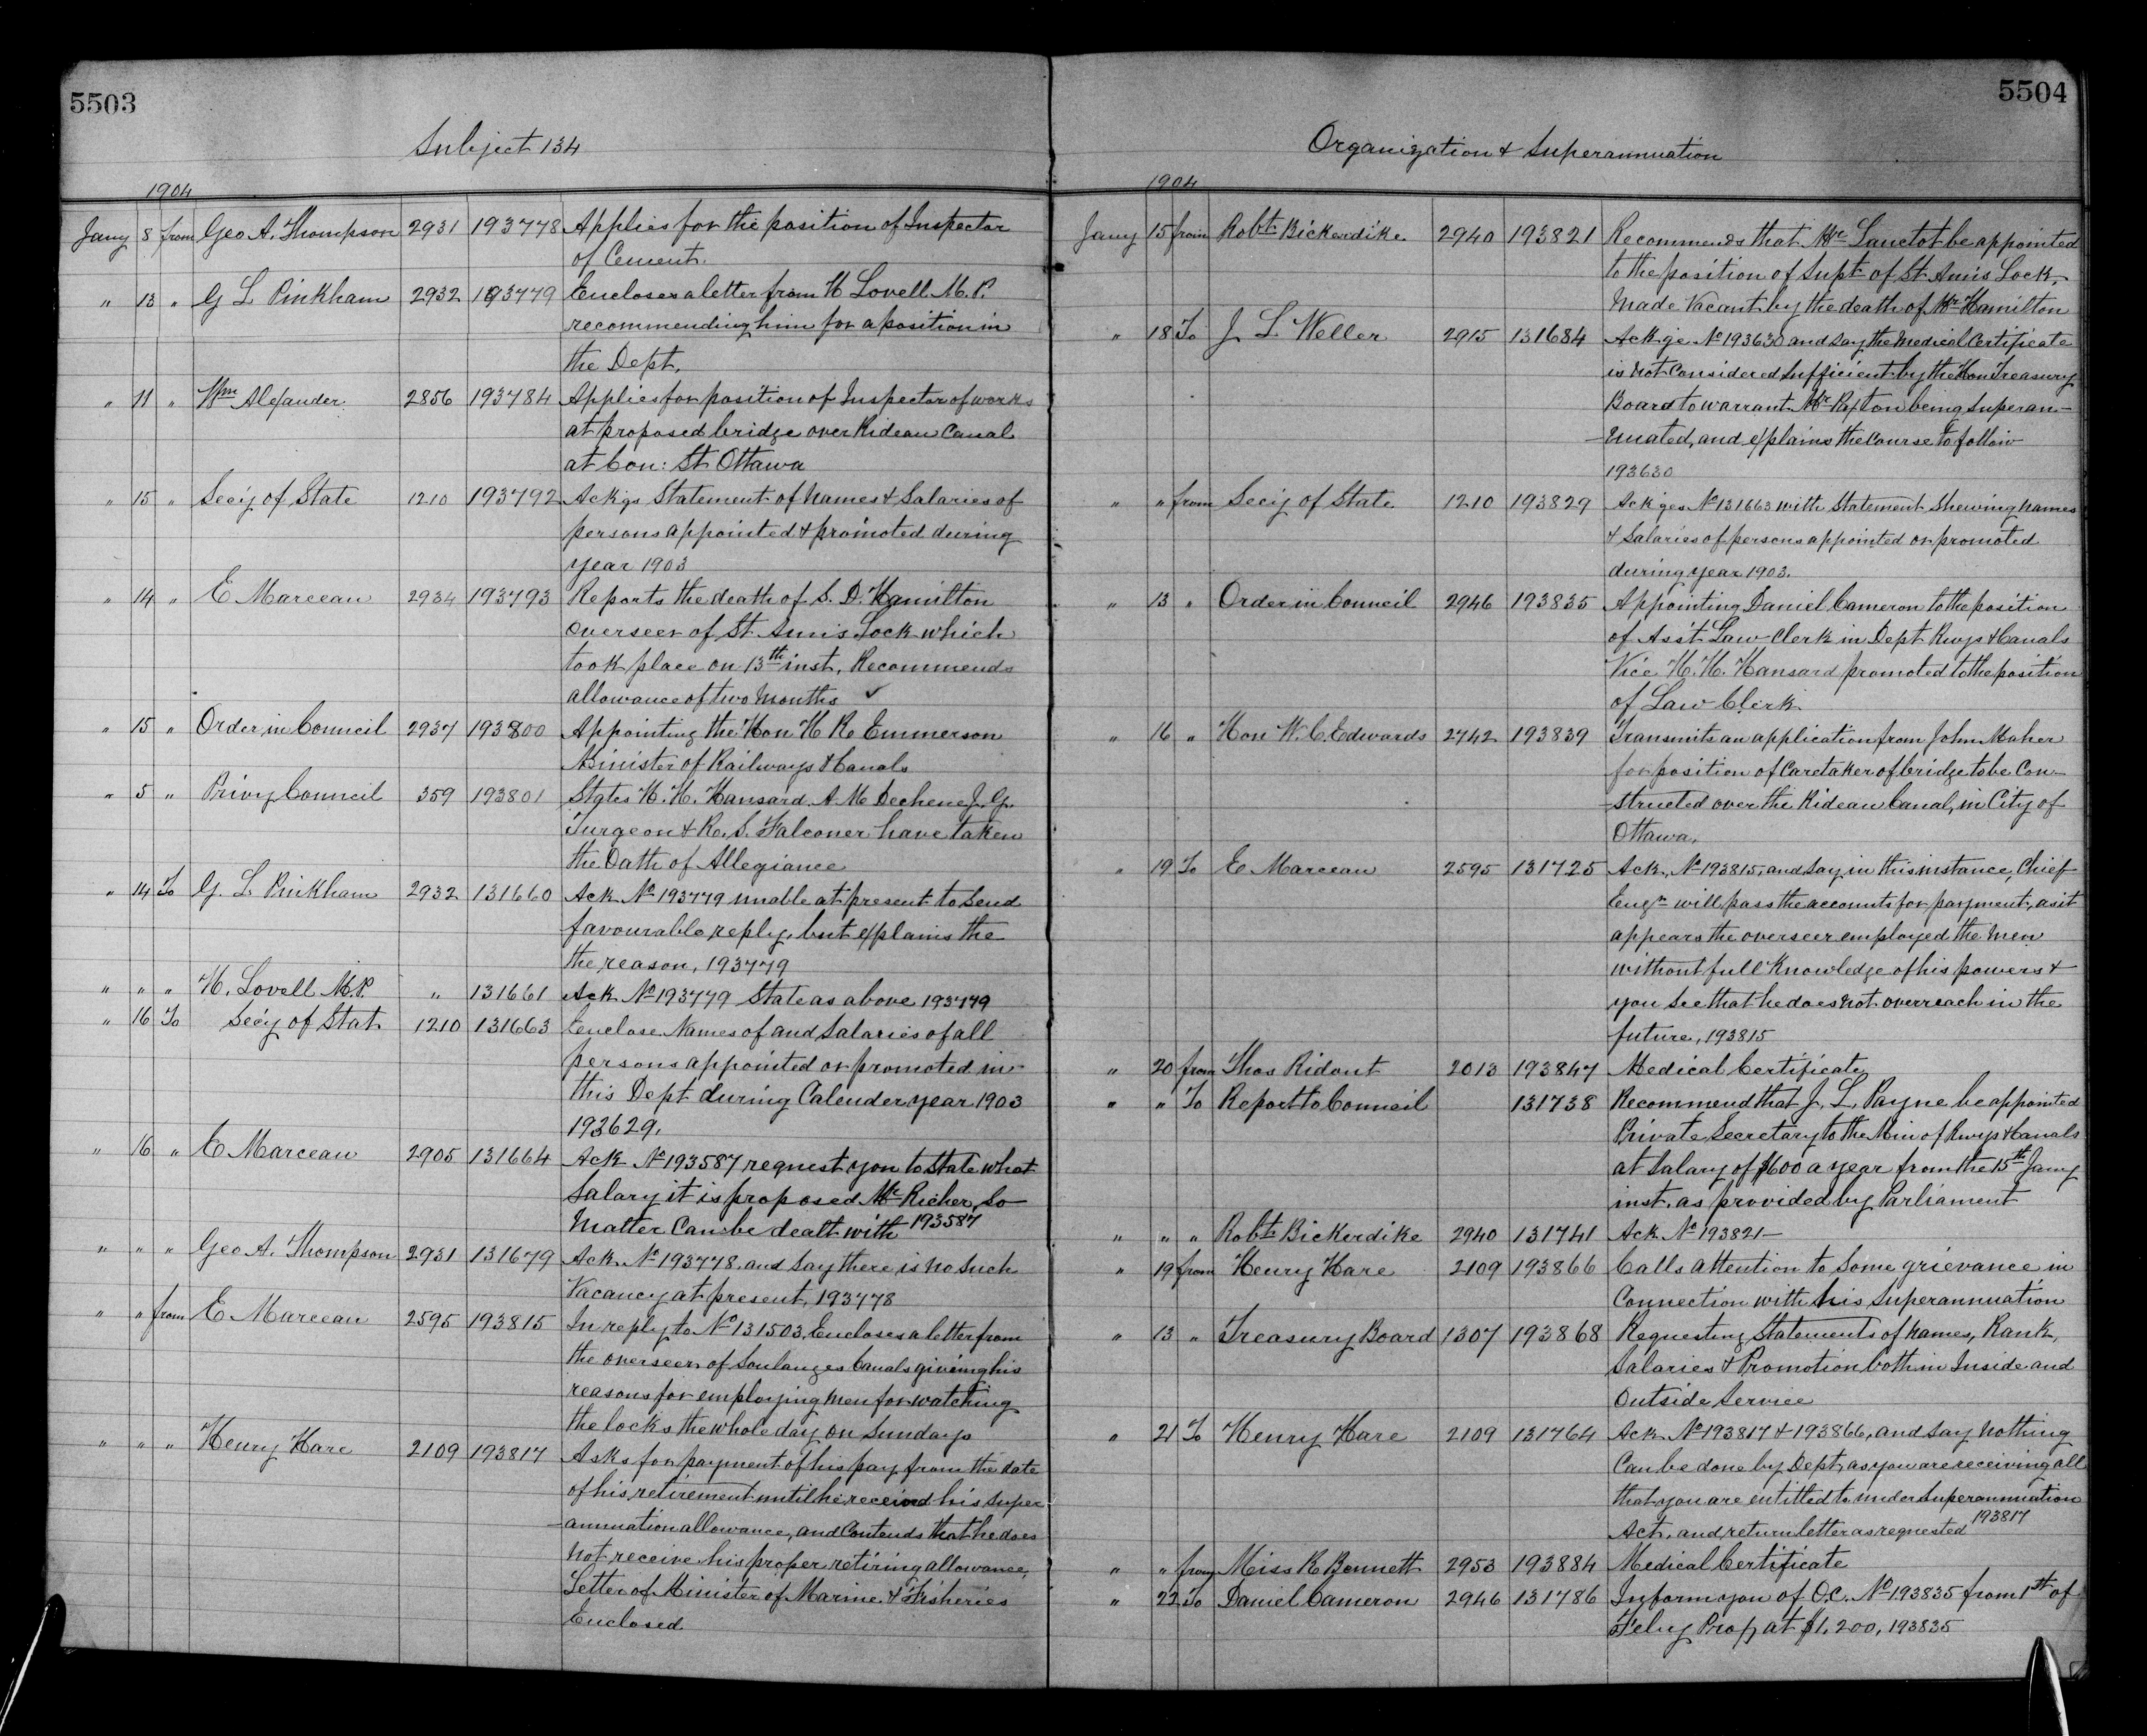 5503
Subject 134
1904
Jany 8 from Geo A. Thompson 2931 193778 Applies for the position of Inspector
of Cement.
" 13 " G L Pinkham 2932 193779 Encloses a letter from H Lovell M.P.
recommending him for a position in
the Dept.
" 11 " Wm Alexander 2856 193784 Applies for position of Inspector of works
at proposed bridge over Rideau Canal
at Con: St Ottawa
" 15 " Secy of State 1210 193792 Ackgs Statement of names & Salaries of
persons appointed & promoted during
year 1903
" 14 " E Marceau 2934 193793 Reports the death of S. D. Hamilton
Overseer of St Anns Lock which
took place on 13th inst, Recommends
allowance of two months ✓
" 15 " Order in Council 2937 193800 Appointing the Hon H R Emmerson
Minister of Railways & Canals
" 5 " Privy Council 359 193801 States H. H. Hansard. A M Dechene J. G.
Turgeon & R. S. Falconer have taken
the Oath of Allegiance
" 14 To G. L Pinkham 2932 131660 Ack No 193779 unable at present to send
favourable reply, but explains the
the reason, 193779
" " " H. Lovell M.P. " 131661 Ack No 193779 State as above 193779
" 16 To Secy of Stat 1210 131663 Enclose Names of and Salaries of all
persons appointed or promoted in
this Dept during Calender year 1903
193629.
" 16 " E Marceau 2905 131664 Ack No 193587 request you to state what
Salary it is proposed Mr Richer, So
Matter can be dealt with 193587
" " " Geo A. Thompson 2931 131679 Ack No 193778 and say there is no such
Vacancy at present, 193778
" " from E Marceau 2595 193815 In reply to No 131503, Encloses a letter from
the overseer of Soulanges Canals giving his
reasons for employing men for watching
the locks the whole day on Sundays
" " " Henry Hare 2109 193817 Asks for payment of his pay from the date
of his retirement until he received his super
-annuation allowance, and Contends that he does
not receive his proper retiring allowance,
Letter of Minister of Marine & Fisheries
Enclosed
5504
Organization & Superannuation
1904
Jany 15 from Robt Bickerdike 2940 193821 Recommends that Mr Lanctot be appointed
to the position of Supt of St Anns Lock,
Made Vacant by the death of Mr Hamilton
" 18 To J L Weller 2915 131684 Ackge No 193630 and say the Medical Certificate
is not considered Sufficient by the Hon Treasury
Board to warrant Mr Paxton being Superan-
-nuated, and explains the course to follow
193630
" " from Secy of State 1210 193829 Ackges No 131663 with Statement Shewing names
& Salaries of persons appointed or promoted
during year 1903.
" 13 " Order in Council 2946 193835 Appointing Daniel Cameron to the position
of Ass't Law Clerk in Dept Rwys & Canals
Vice H. H. Hansard promoted to the position
of Law Clerk
" 16 " Hon W. C. Edwards 2742 193839 Transmits an application from John Maher
for position of Caretaker of bridge to be Con-
-structed over the Rideau Canal, in City of
Ottawa,
" 19 To E Marceau 2595 131725 Ack, No 193815, and say in this instance, Chief
Engr will pass the accounts for payment, as it
appears the overseer employed the men
without full knowledge of his powers &
you see that he does not overreach in the
future, 193815
" 20 from Thos Ridout 2013 193847 Medical Certificate
" " To Report to Council 131738 Recommend that J. L. Payne be appointed
Private Secretary to the Min of Rwys & Canals
at Salary of $600 a year from the 15th Jany
inst. as provided by Parliament
" " " Robt Bickerdike 2940 131741 Ack No 193821-
" 19 from Henry Hare 2109 193866 Calls attention to some grievance in
Connection with his Superannuation
" 13 " Treasury Board 1307 193868 Requesting Statements of names, Rank,
Salaries & Promotion both in Inside and
Outside Service
" 21 To Henry Hare 2109 131764 Ack No 193817 & 193866, and say nothing
Can be done by Dept, as you are receiving all
that you are entitled to under Superannuation
Act, and return letter as requested 193817
" " from Miss R Bennett 2953 193884 Medical Certificate
" 22 To Daniel Cameron 2946 131786 Inform you of O.C. No 193835 from 1st of
Feby Prop, at $1,200, 193835